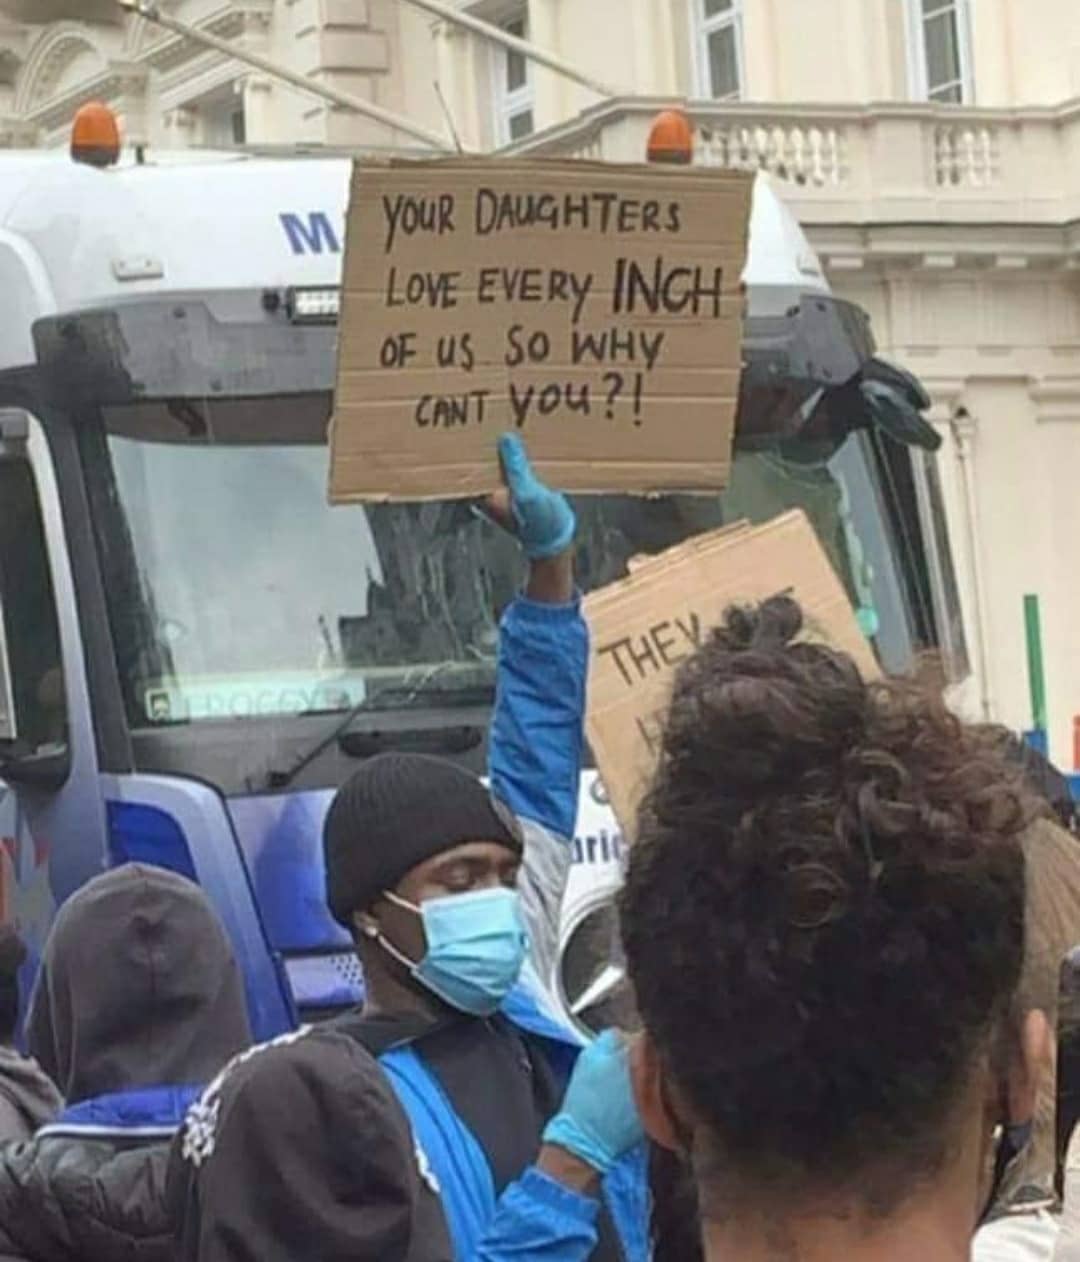 M
YOUR DAUGHTERS
LOVE EVERY INCH
OF US SO WHY
CANT YOU?!
THEY